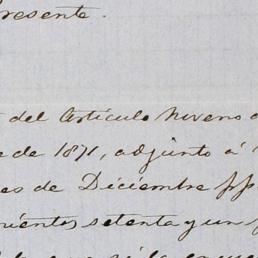 resente.
del Artículo Noveno
de 1871, adjunto á
es de Diciembre pp
rientos setenta y un